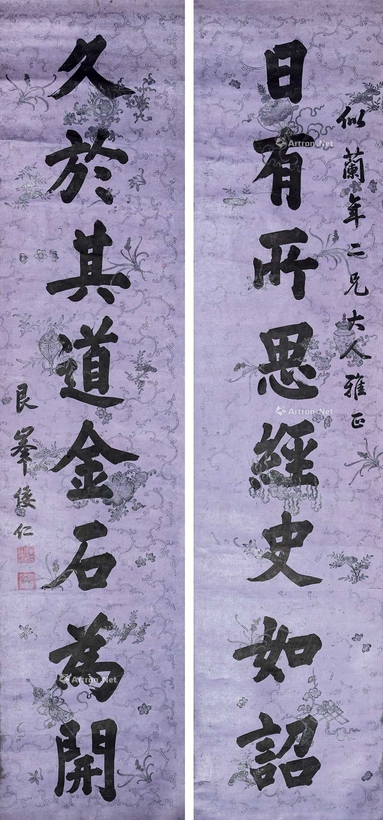 似蘭年二兄大人雅正
日有所思經史如詔
久於其道金石為開
艮峯倭仁
Artron.Net
Artron.Net
Artron.Net